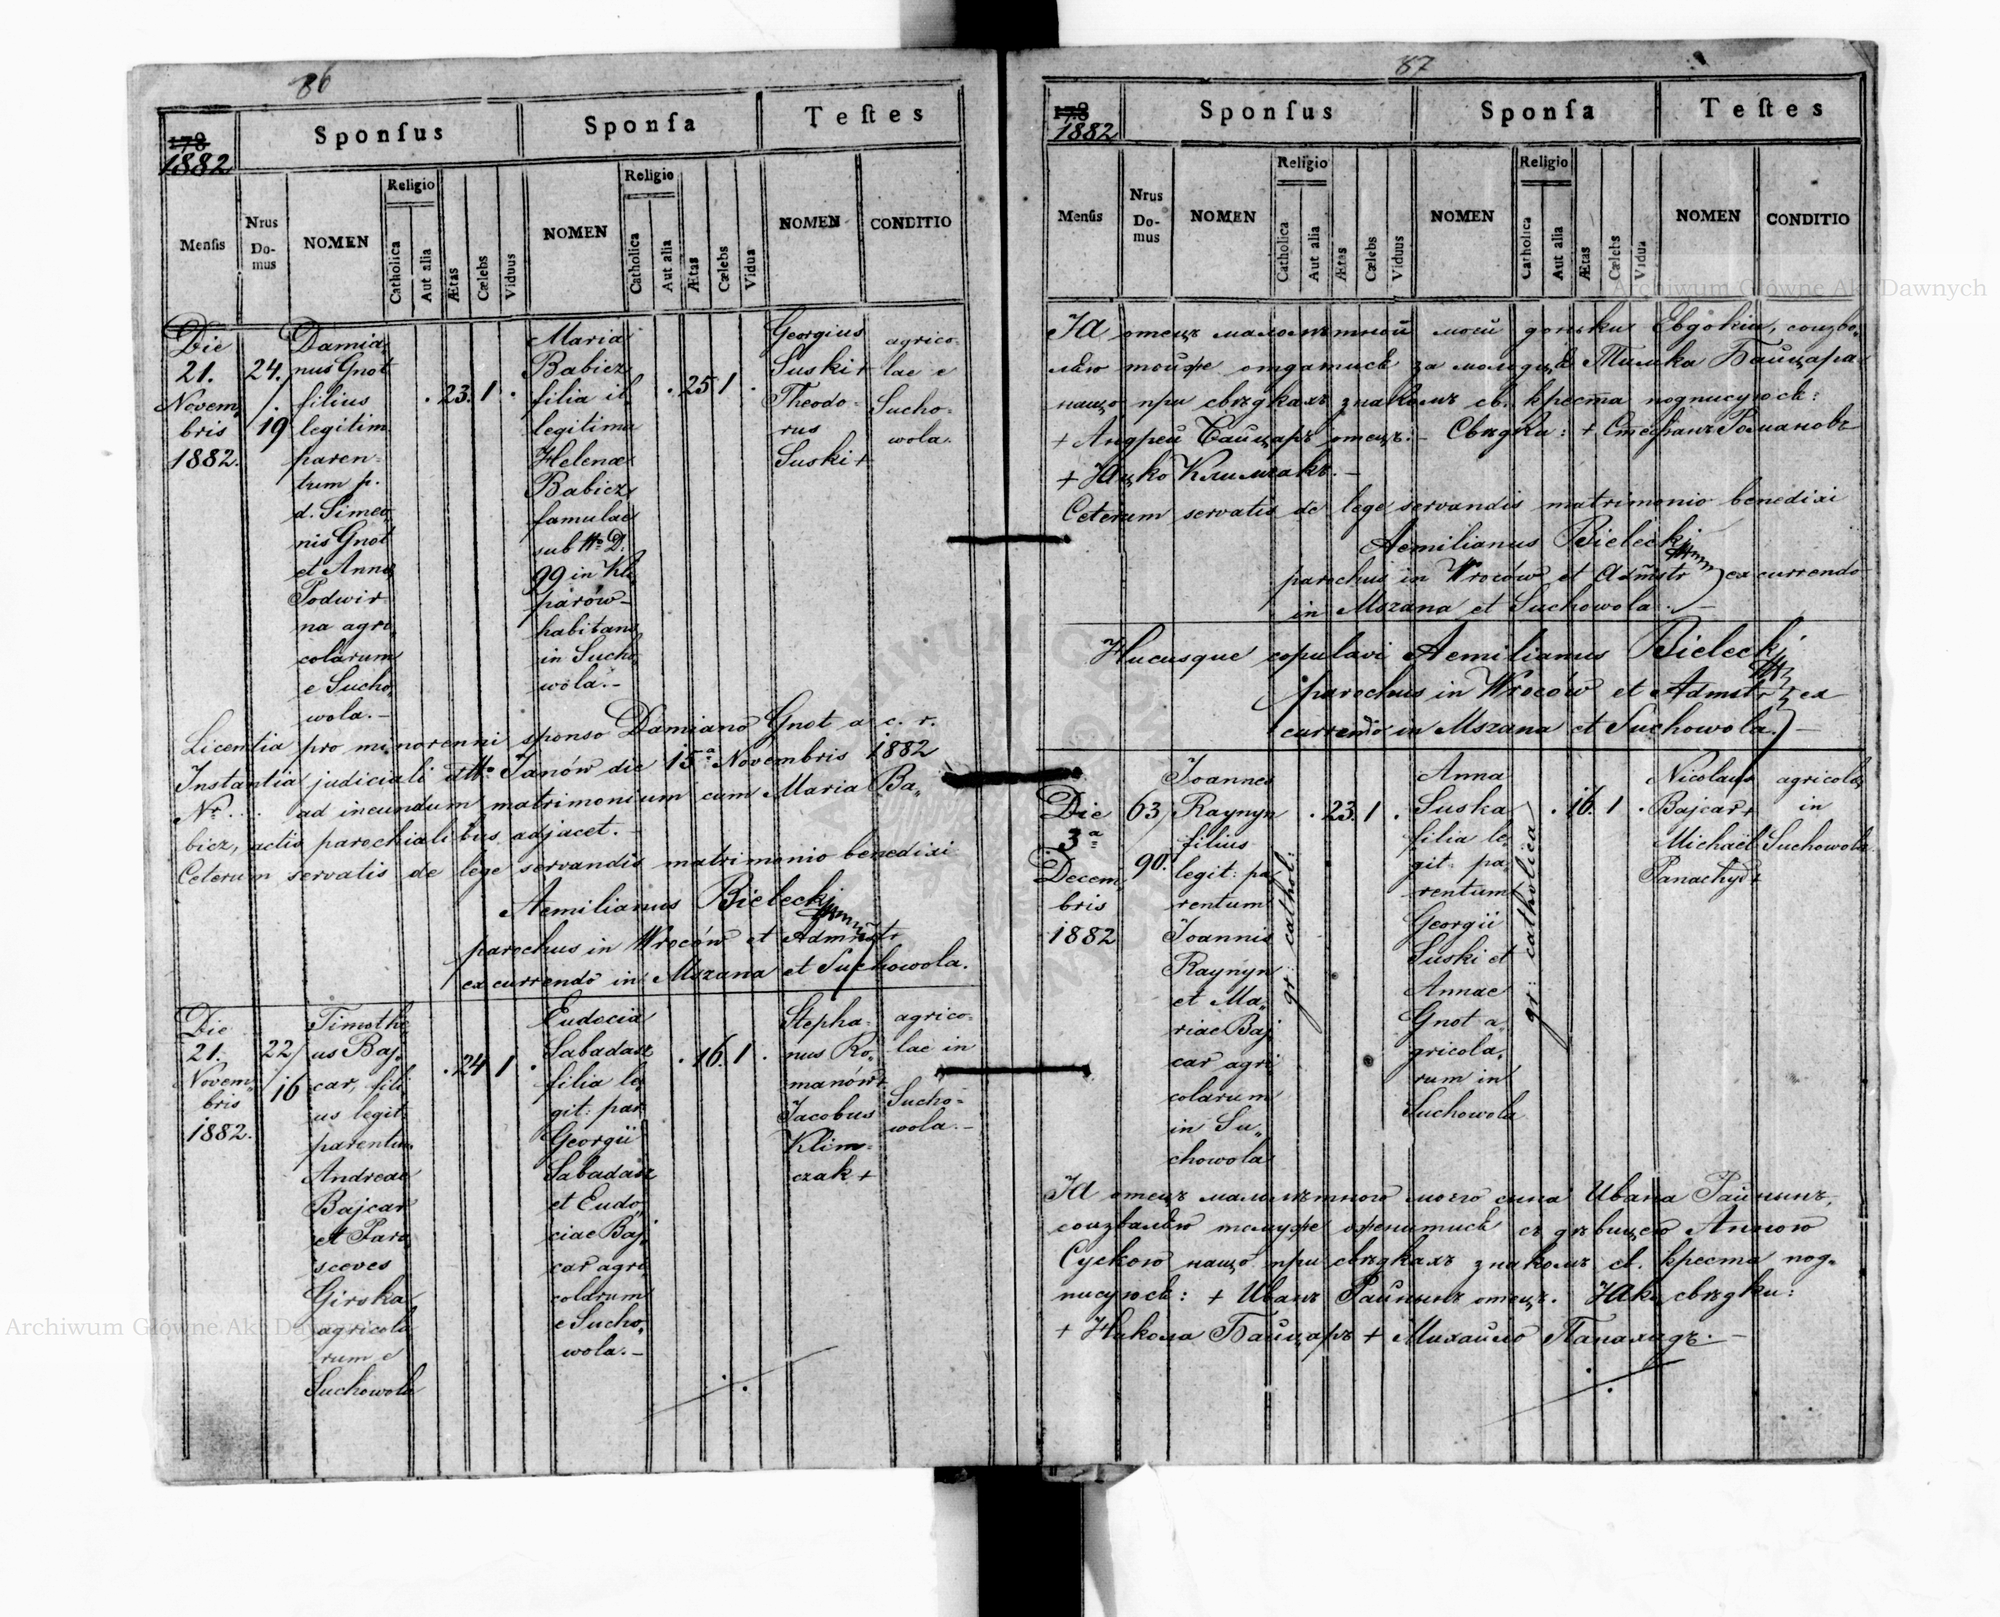 86
178
1882
Sponſus
Sponſa
Teſtes
Menſis
Nrus Do-mus
NOMEN
Religio
Catholica
Aut alia
Ætas
Cælebs
Viduus
NOMEN
Religio
Catholica
Aut alia
Ætas
Cælebs
Vidua
NOMEN
CONDITIO
Die
21.
Novem
bris
1882.
24.
19
Damia
nus Gnot
filius
legitim
paren-
tum p.
d. Simeo
nis Gnot
et Anna
Podwir
na agri
colarum
e Sucho
wola.-
. 23. 1 .
Maria
Babicz
filia il
legitima
Helenae
Babicz
famulae
sub No D.
99 in Kle
parów-
habitans
in Sucho
wola.-
. 25 1 .
Georgius
Suski +
Theodo-
rus
Suski +
agrico-
lae e
Sucho-
wola.
Licentia pro minorenni sponso Damiano Gnot a c. r.
Instantia judiciali ddto Janów die 15a Novembris 1882
Nr .... ad incundum matrimonium cum Maria Ba„
bicz, actis parochialibus adjacet.-
Ceterum servatis de lege servandis matrimonio benedixi
Aemilianus Bielecki
parochus in Wroców et Admnstr
excurrendo in Mszana et Suchowola.
Die
21.
Novem
bris
1882.
22/
16
Timothe
us Baj
car, fili
us legit
parentum
Andreae
Bajcar
et Para
sceves
Girska
agricola
rum e
Suchowola
. 24 1 .
Eudocia
Sabadasz
filia le
git: par
Georgii
Sabadasz
et Eudo
ciae Baj
car agri
colarum
e Sucho
wola.-
. 16. 1 .
Stepha-
nus Ro„
manów +
Jacobus
Klim-
czak +
agrico-
lae in
Sucho-
wola.-
87
178
1882
Sponſus
Sponſa
Teſtes
Menſis
Nrus Do-mus
NOMEN
Religio
Catholica
Aut alia
Ætas
Cælebs
Viduus
NOMEN
Religio
Catholica
Aut alia
Ætas
Cælebs
Vidua
NOMEN
CONDITIO
Я отецъ малолѣтной моей доньки Евдокіи, соизво„
ляю тойже отдатись за молодця Тимка Байцара
нащо при свѣдкахъ знакомъ св. креста подписуюсь:
+ Андрей Байцаръ отецъ.- Свѣдки: + Стефанъ Романовъ
+ Яцко Климчакъ.-
Ceterum servatis de lege servandis matrimonio benedixi
Aemilianus Bielecki
parochus in Wroców et Admstr excurrendo
in Mszana et Suchowola.-
Hucusque copulavi Aemilianus Bielecki
parochus in Wroców et Admstr ex
currendo in Mszana et Suchowola.-
Die
3a
Decem
bris
1882
63/
90.
Joannes
Raynyn
filius
legit: pa
rentum
Joannis
Raynyn
et Ma„
riae Baj
car agri
colarum
in Su„
chowola
gr: cathol:
. 23. 1 .
Anna
Suska
filia le
git: pa„
rentum
Georgii
Suski et
Annae
Gnot a„
gricola„
rum in
Suchowola
gr: catholica
. 16. 1 .
Nicolaus
Bajcar +
Michael
Panachyd +
agricolae
in
Suchowola
Я отецъ малолѣтного моего сина Ивана Райнынъ,
соизваляю томуже оженитись съ дѣвицею Анною
Сускою нащо при свѣдкахъ знакомъ св. креста под„
писуюсь: + Иванъ Райнынъ отецъ. Яко свѣдки:
+ Никола Байцаръ + Михайло Панахидъ.-
Archiwum Główne Akt Dawnych
Archiwum Główne Akt Dawnych